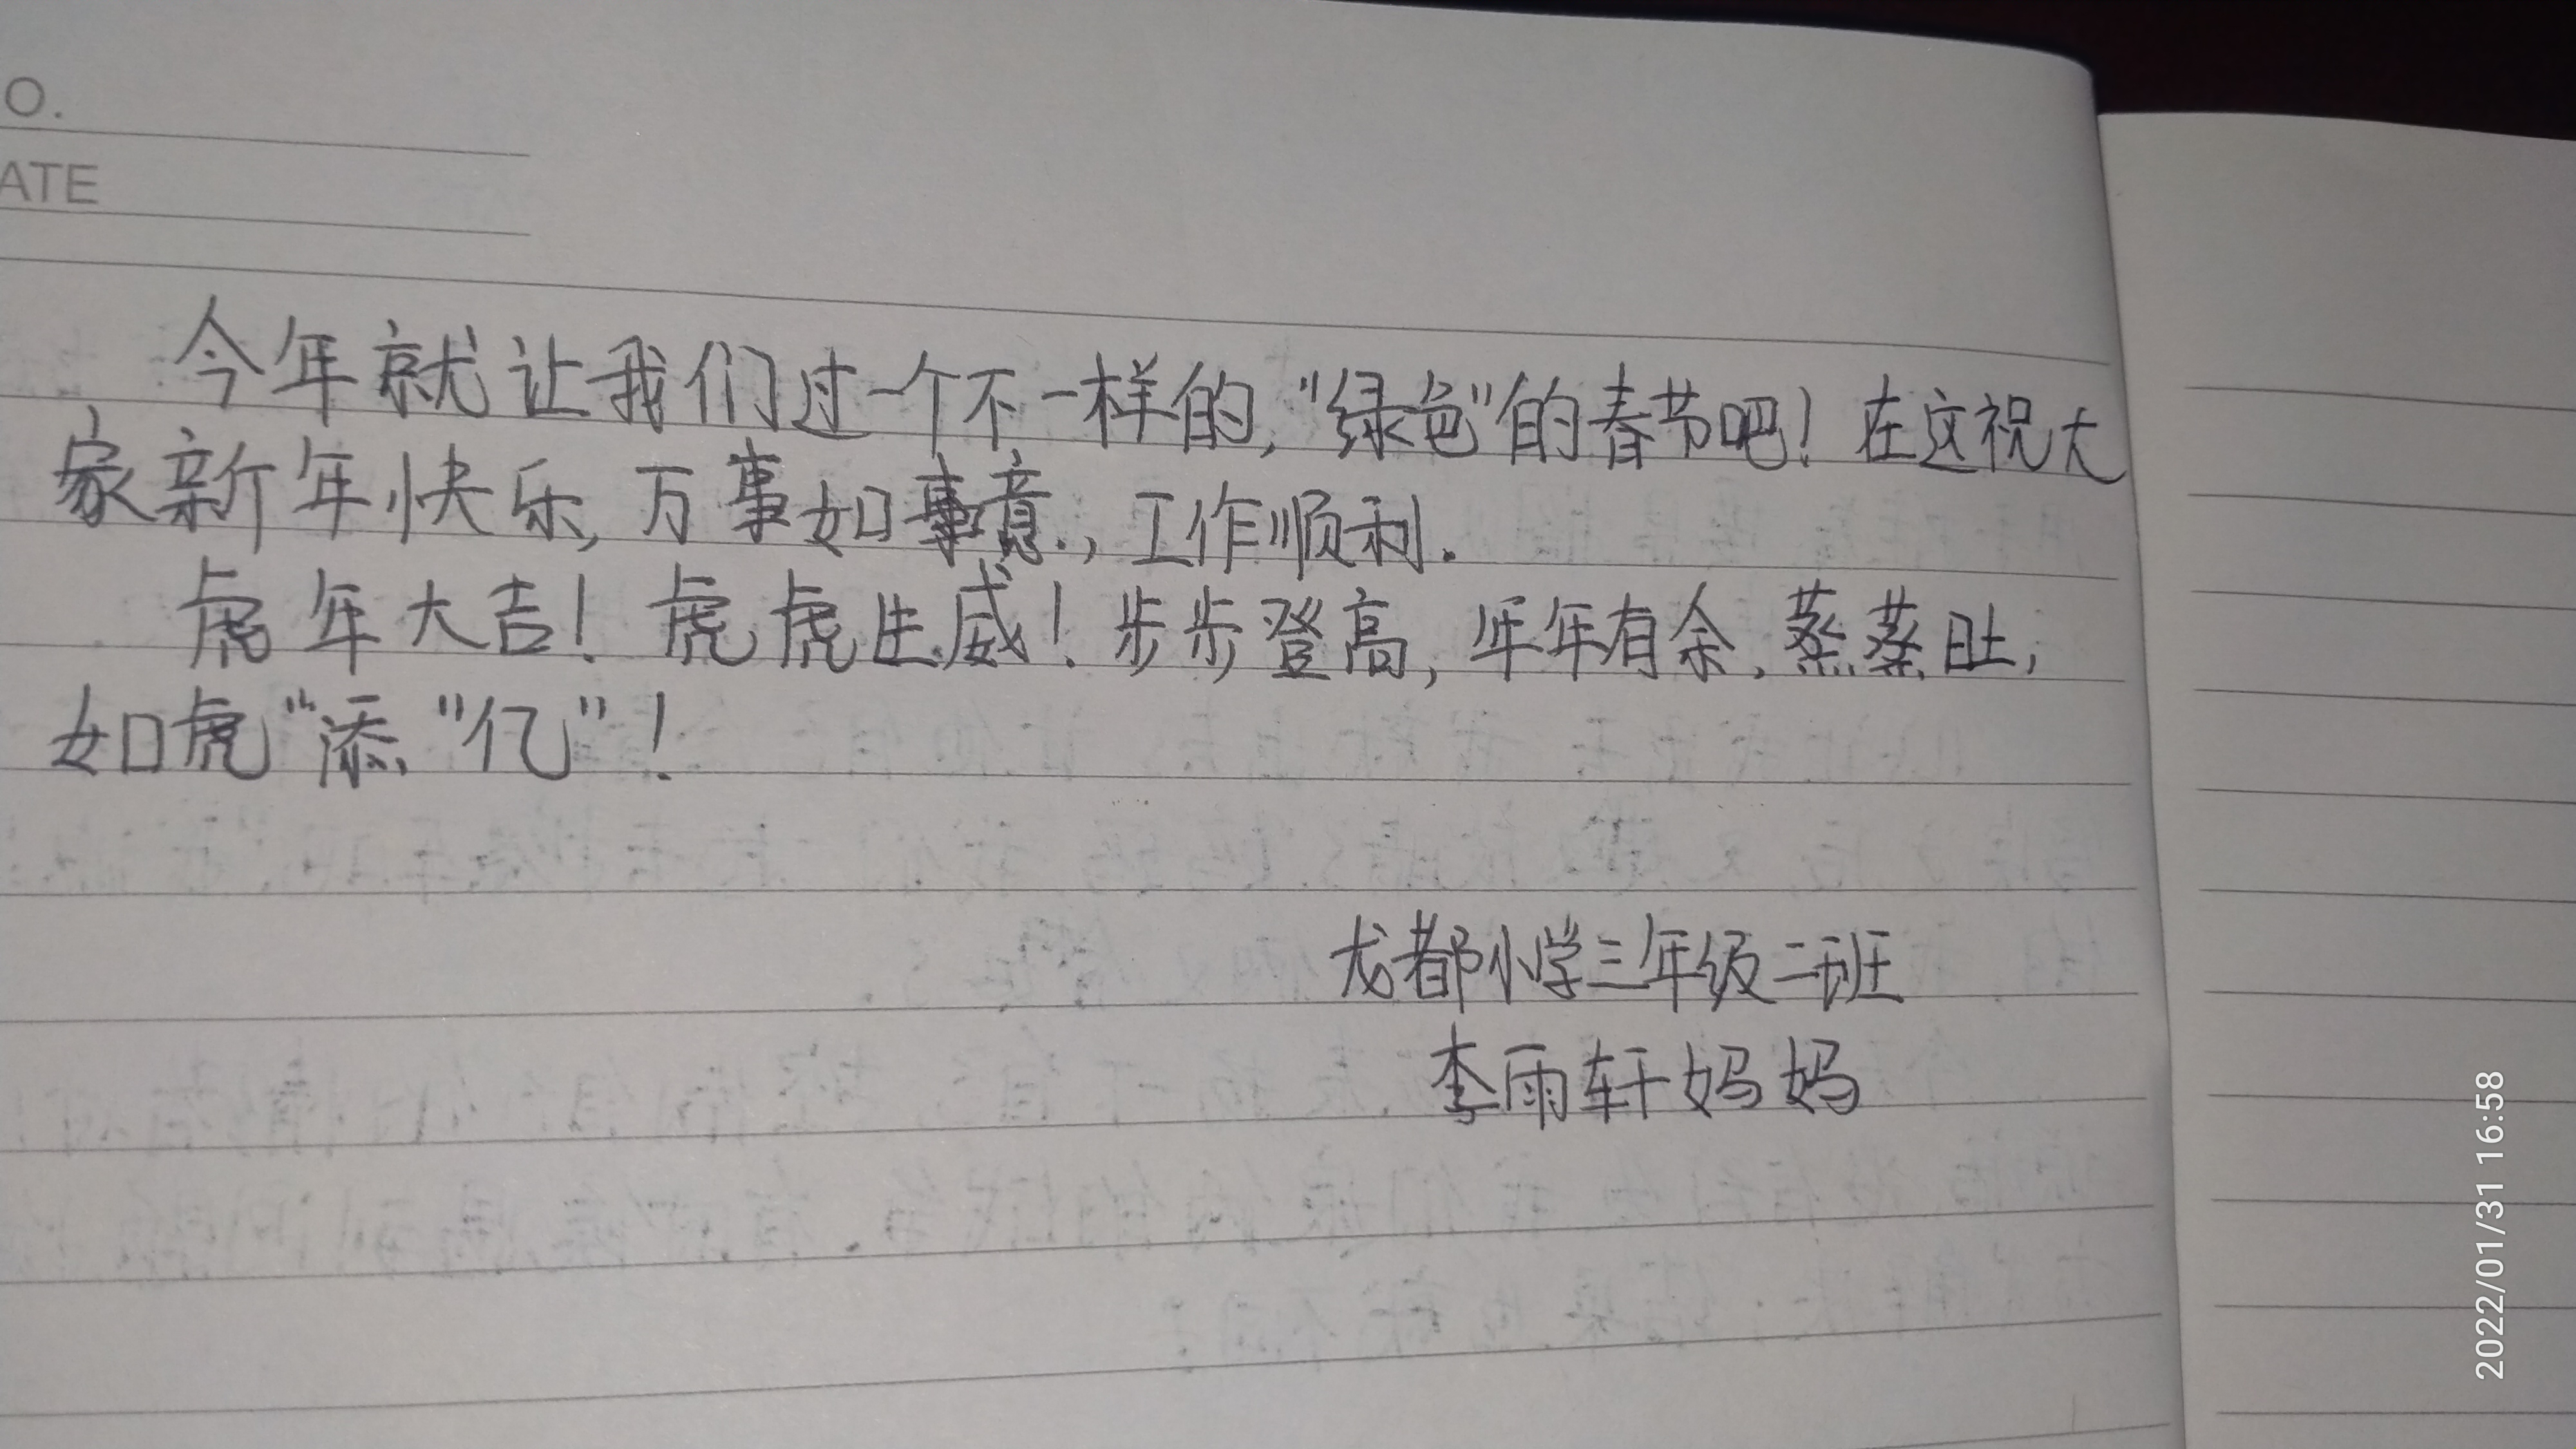 O.
ATE
今年就让我们过一个不一样的,"绿色"的春节吧!在这祝大
家新年快乐,万事如事意.,工作顺利.
虎年大吉!虎虎生威!步步登高,年年有余,蒸蒸日上,
如虎"添"亿"!
龙都小学三年级二班
李雨轩妈妈
2022/01/31 16:58